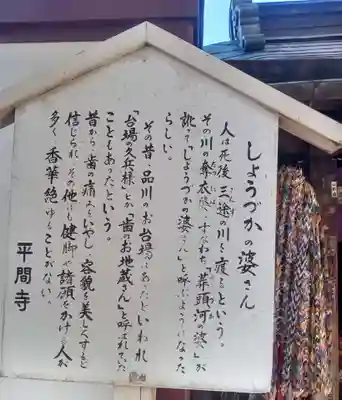 しょうづかの婆さん
人は死後「三途の川を渡る」という。
その川の奪衣婆、すなわち「葬頭河の婆」が
訛って「しょうづかの婆さん」と呼ぶようになった
らしい。
その昔、品川のお台場にあったといわれ
「台場の久兵様」とか「歯のお地蔵さん」と呼ばれていた
こともあったという。
昔から、歯の痛みをいやし、容貌を美しくすると
信じられ、その他にも健脚や諸願をかける人が
多く香華絶ゆることがない。
平間寺